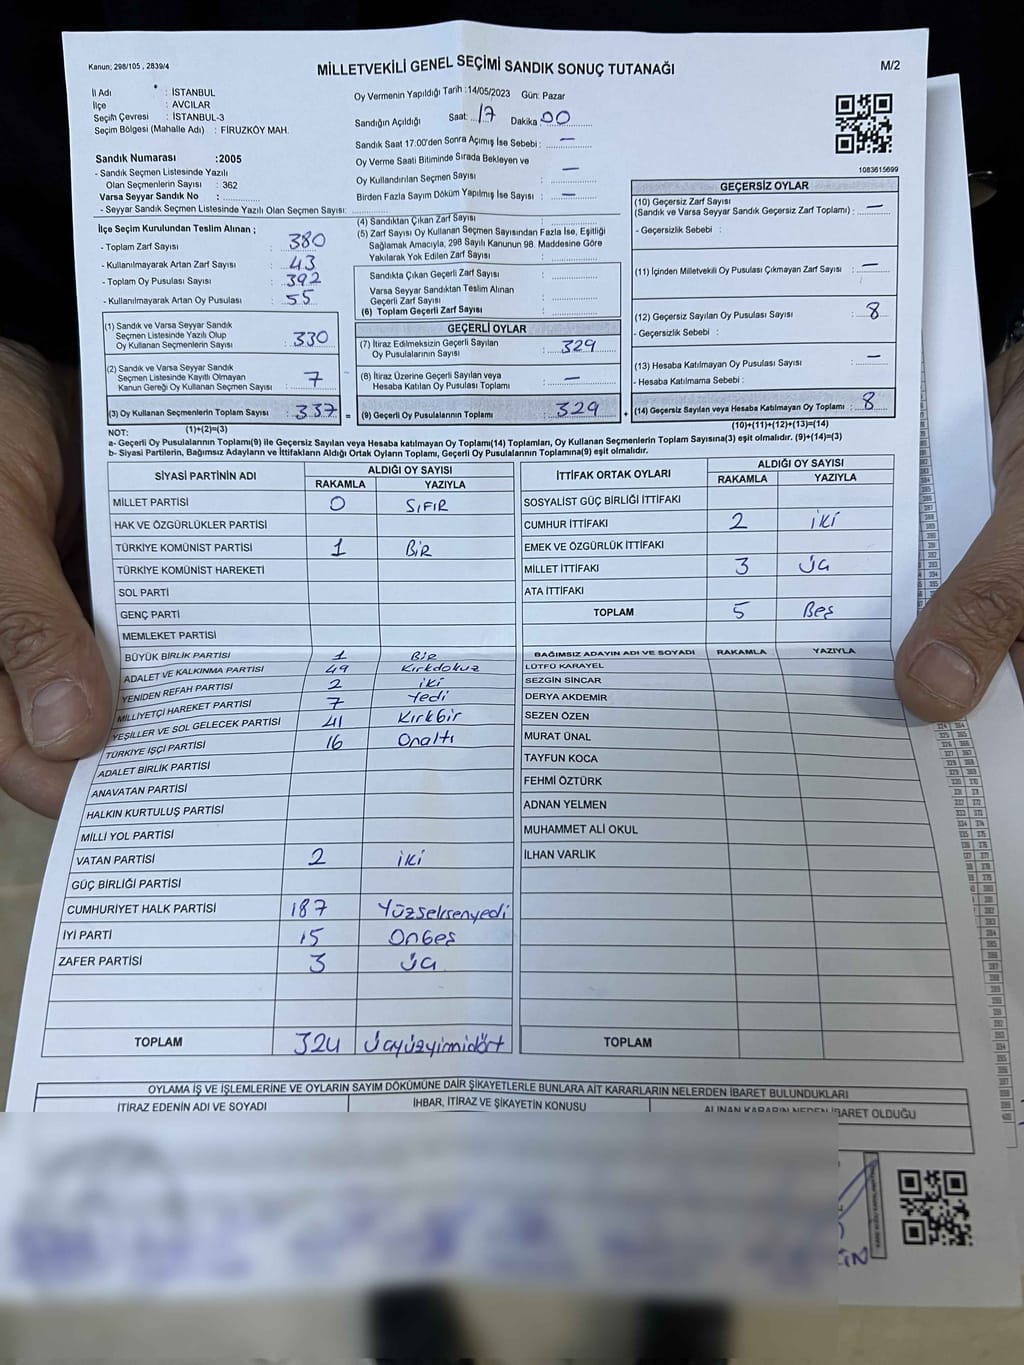 Kanun; 298/105 , 2839/4
MİLLETVEKİLİ GENEL SEÇİMİ SANDIK SONUÇ TUTANAĞI
M/2
İl Adı : İSTANBUL
İlçe : AVCILAR
Seçim Çevresi : İSTANBUL-3
Seçim Bölgesi (Mahalle Adı) : FİRUZKÖY MAH.
Sandık Numarası :2005
- Sandık Seçmen Listesinde Yazılı
Olan Seçmenlerin Sayısı : 362
Varsa Seyyar Sandık No :
- Seyyar Sandık Seçmen Listesinde Yazılı Olan Seçmen Sayısı:
Oy Vermenin Yapıldığı Tarih :14/05/2023 Gün: Pazar
Sandığın Açıldığı Saat: 17 Dakika: 00
Sandık Saat 17:00'den Sonra Açımış İse Sebebi : —
Oy Verme Saati Bitiminde Sırada Bekleyen ve
Oy Kullandırılan Seçmen Sayısı : —
Birden Fazla Sayım Döküm Yapılmış İse Sayısı : —
1083615699
İlçe Seçim Kurulundan Teslim Alınan ;
- Toplam Zarf Sayısı : 380
- Kullanılmayarak Artan Zarf Sayısı : 43
- Toplam Oy Pusulası Sayısı : 392
- Kullanılmayarak Artan Oy Pusulası : 55
(1) Sandık ve Varsa Seyyar Sandık
Seçmen Listesinde Yazılı Olup
Oy Kullanan Seçmenlerin Sayısı : 330
(2) Sandık ve Varsa Seyyar Sandık
Seçmen Listesinde Kayıtlı Olmayan
Kanun Gereği Oy Kullanan Seçmen Sayısı : 7
(3) Oy Kullanan Seçmenlerin Toplam Sayısı : 337 =
(1)+(2)=(3)
(4) Sandıktan Çıkan Zarf Sayısı :
(5) Zarf Sayısı Oy Kullanan Seçmen Sayısından Fazla İse, Eşitliği
Sağlamak Amacıyla, 298 Sayılı Kanunun 98. Maddesine Göre
Yakılarak Yok Edilen Zarf Sayısı :
Sandıkta Çıkan Geçerli Zarf Sayısı :
Varsa Seyyar Sandıktan Teslim Alınan
Geçerli Zarf Sayısı :
(6) Toplam Geçerli Zarf Sayısı :
GEÇERLİ OYLAR
(7) İtiraz Edilmeksizin Geçerli Sayılan
Oy Pusulalarının Sayısı : 329
(8) İtiraz Üzerine Geçerli Sayılan veya
Hesaba Katılan Oy Pusulası Toplamı : —
(9) Geçerli Oy Pusulalarının Toplamı : 329 +
GEÇERSİZ OYLAR
(10) Geçersiz Zarf Sayısı
(Sandık ve Varsa Seyyar Sandık Geçersiz Zarf Toplamı) : —
- Geçersizlik Sebebi :
(11) İçinden Milletvekili Oy Pusulası Çıkmayan Zarf Sayısı : —
(12) Geçersiz Sayılan Oy Pusulası Sayısı : 8
- Geçersizlik Sebebi :
(13) Hesaba Katılmayan Oy Pusulası Sayısı : —
- Hesaba Katılmama Sebebi :
(14) Geçersiz Sayılan veya Hesaba Katılmayan Oy Toplamı : 8
(10)+(11)+(12)+(13)=(14)
NOT:
a- Geçerli Oy Pusulalarının Toplamı(9) ile Geçersiz Sayılan veya Hesaba katılmayan Oy Toplamı(14) Toplamları, Oy Kullanan Seçmenlerin Toplam Sayısına(3) eşit olmalıdır. (9)+(14)=(3)
b- Siyasi Partilerin, Bağımsız Adayların ve İttifakların Aldığı Ortak Oyların Toplamı, Geçerli Oy Pusulalarının Toplamına(9) eşit olmalıdır.
SİYASİ PARTİNİN ADI ALDIĞI OY SAYISI
RAKAMLA YAZIYLA
MİLLET PARTİSİ 0 SIFIR
HAK VE ÖZGÜRLÜKLER PARTİSİ
TÜRKİYE KOMÜNİST PARTİSİ 1 BİR
TÜRKİYE KOMÜNİST HAREKETİ
SOL PARTİ
GENÇ PARTİ
MEMLEKET PARTİSİ
BÜYÜK BİRLİK PARTİSİ 1 Bir
ADALET VE KALKINMA PARTİSİ 49 Kırkdokuz
YENİDEN REFAH PARTİSİ 2 iki
MİLLİYETÇİ HAREKET PARTİSİ 7 Yedi
YEŞİLLER VE SOL GELECEK PARTİSİ 41 Kırkbir
TÜRKİYE İŞÇİ PARTİSİ 16 Onaltı
ADALET BİRLİK PARTİSİ
ANAVATAN PARTİSİ
HALKIN KURTULUŞ PARTİSİ
MİLLİ YOL PARTİSİ
VATAN PARTİSİ 2 iki
GÜÇ BİRLİĞİ PARTİSİ
CUMHURİYET HALK PARTİSİ 187 Yüzseksenyedi
İYİ PARTİ 15 Onbeş
ZAFER PARTİSİ 3 Üç
TOPLAM 324 Üçyüzyirmidört
İTTİFAK ORTAK OYLARI ALDIĞI OY SAYISI
RAKAMLA YAZIYLA
SOSYALİST GÜÇ BİRLİĞİ İTTİFAKI
CUMHUR İTTİFAKI 2 iki
EMEK VE ÖZGÜRLÜK İTTİFAKI
MİLLET İTTİFAKI 3 Üç
ATA İTTİFAKI
TOPLAM 5 Beş
BAĞIMSIZ ADAYIN ADI VE SOYADI RAKAMLA YAZIYLA
LÜTFÜ KARAYEL
SEZGİN SİNCAR
DERYA AKDEMİR
SEZEN ÖZEN
MURAT ÜNAL
TAYFUN KOCA
FEHMİ ÖZTÜRK
ADNAN YELMEN
MUHAMMET ALİ OKUL
İLHAN VARLIK
TOPLAM
OYLAMA İŞ VE İŞLEMLERİNE VE OYLARIN SAYIM DÖKÜMÜNE DAİR ŞİKAYETLERLE BUNLARA AİT KARARLARIN NELERDEN İBARET BULUNDUKLARI
İTİRAZ EDENİN ADI VE SOYADI İHBAR, İTİRAZ VE ŞİKAYETİN KONUSU ALINAN KARARIN NEDEN İBARET OLDUĞU